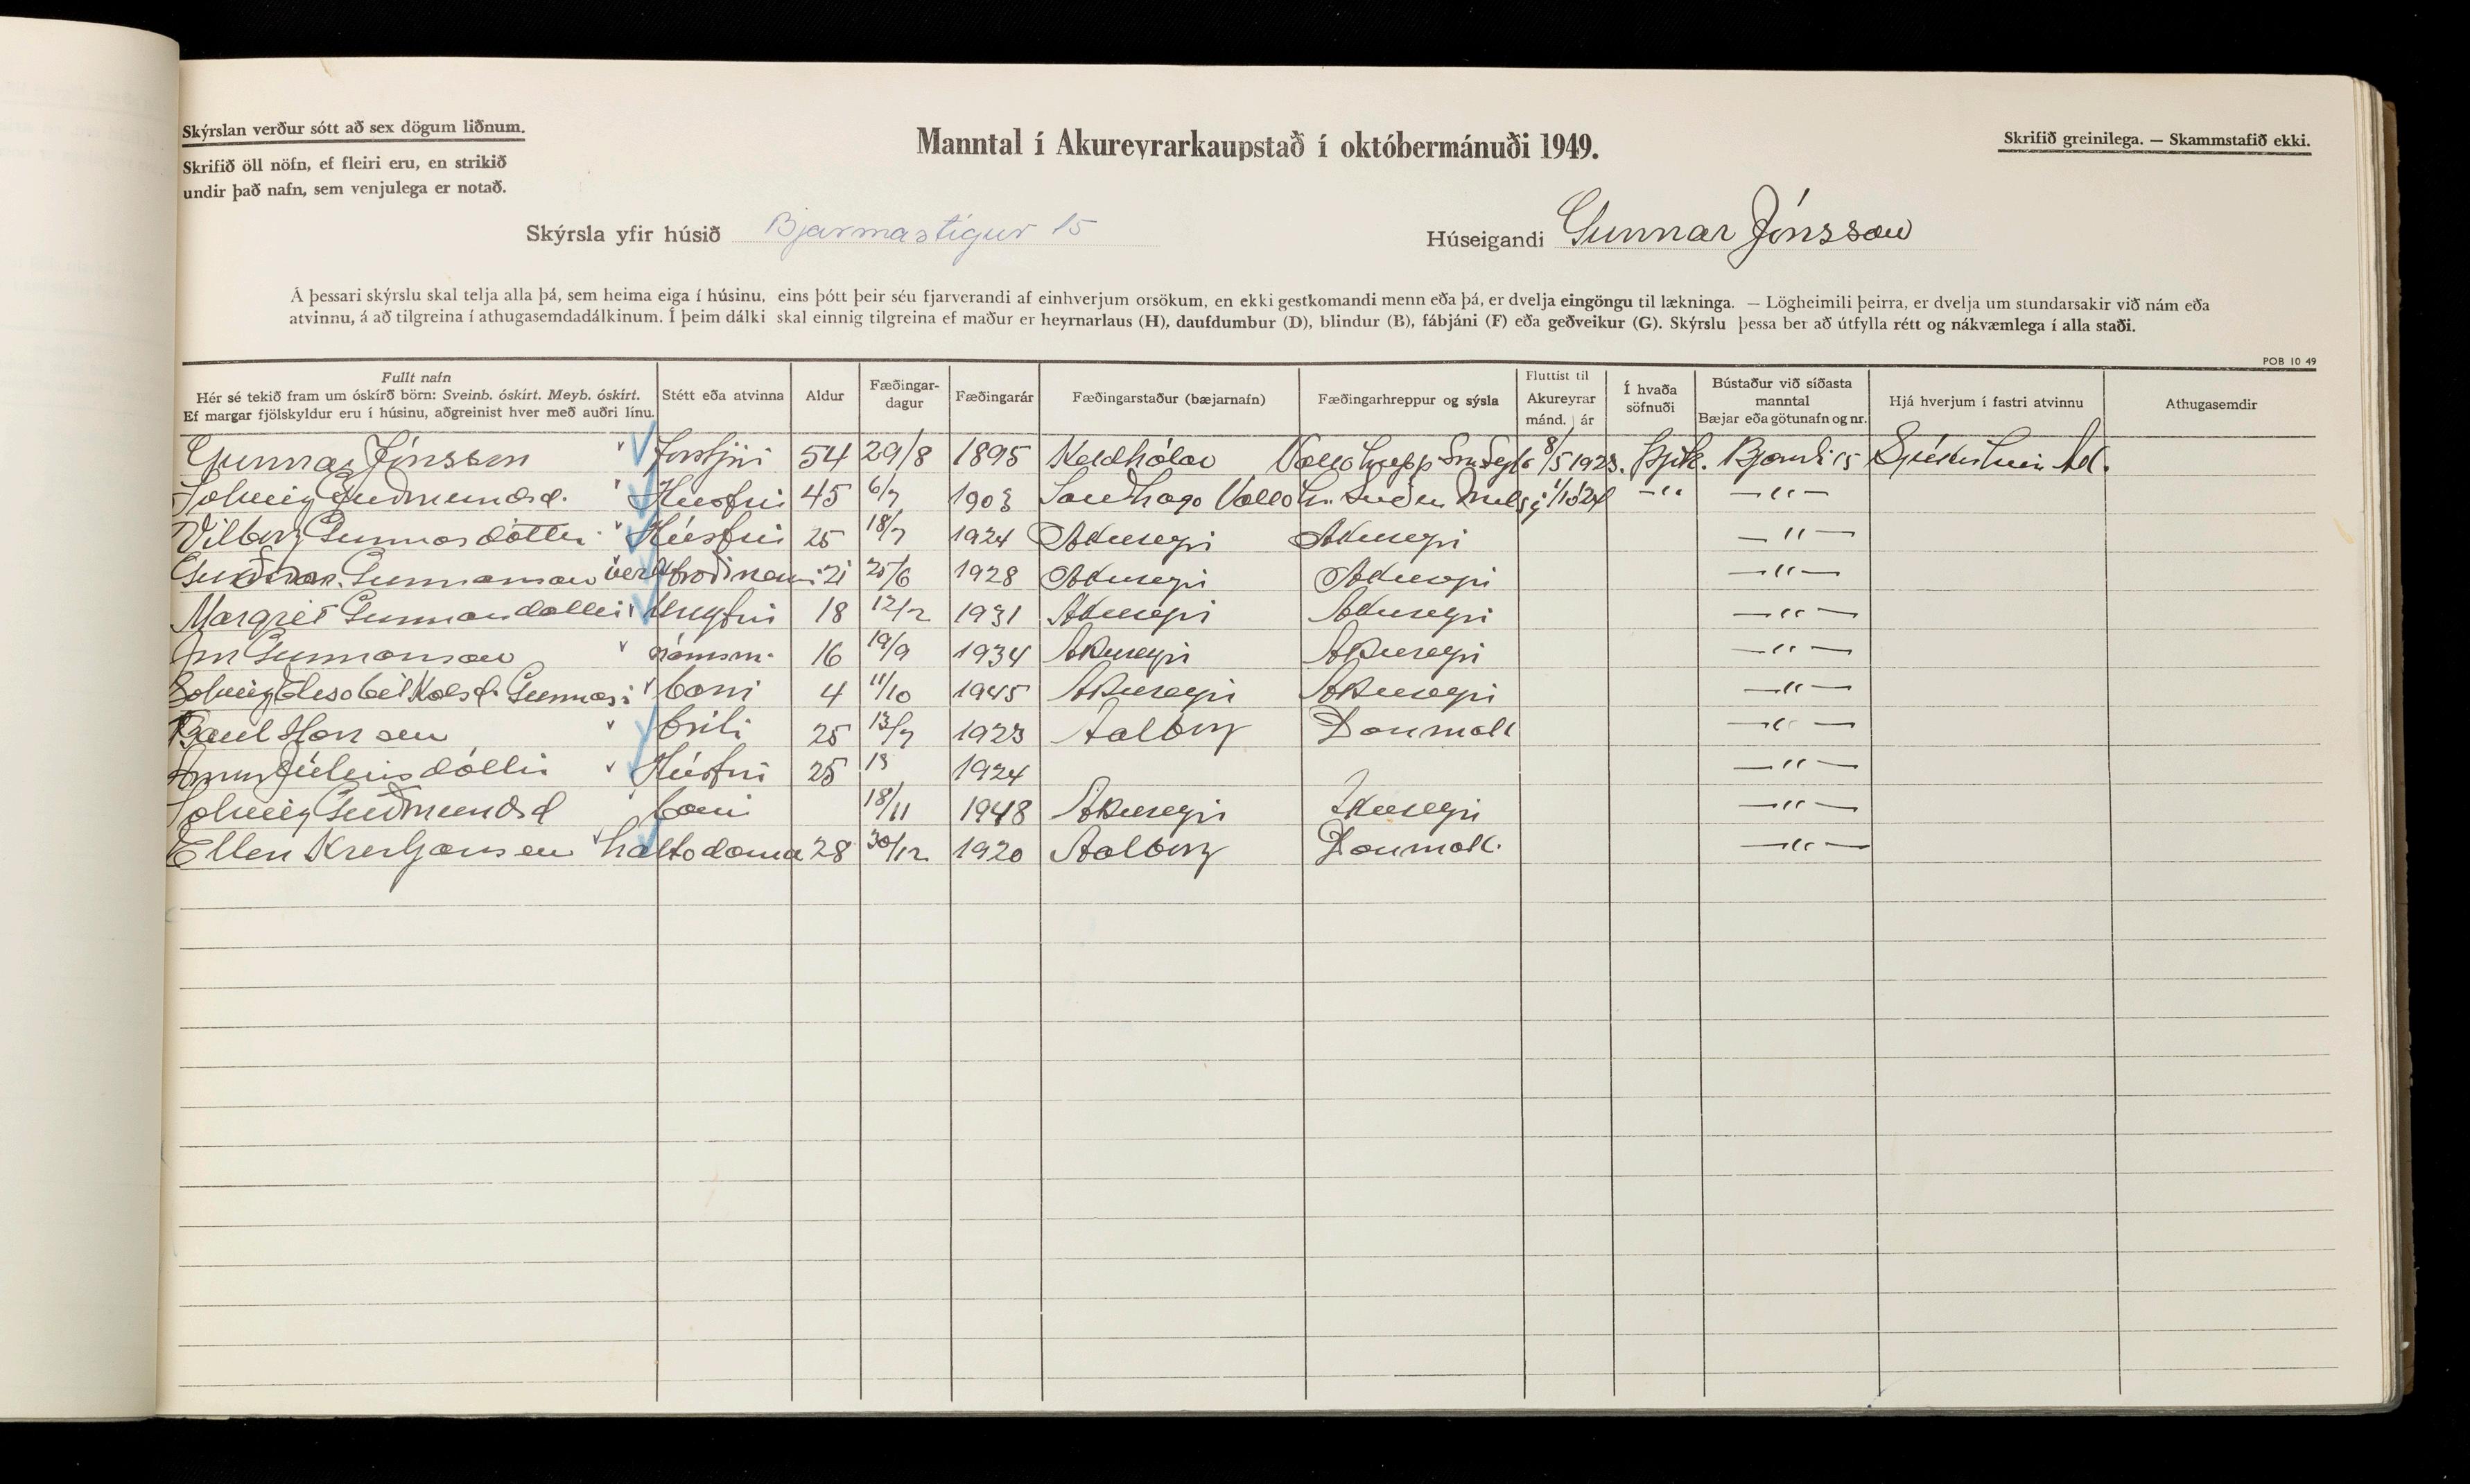 Skýrslan verður sótt að sex dögum liðnum.
Skrifið öll nöfn, ef fleiri eru, en strikið
undir það nafn, sem venjulega er notað.
Manntal í Akureyrarkaupstað í októbermánuði 1949.
Skrifið greinilega. — Skammstafið ekki.
Skýrsla yfir húsið Bjarmastígur 15
Húseigandi Gunnar Jónsson
Á þessari skýrslu skal telja alla þá, sem heima eiga í húsinu, eins þótt þeir séu fjarverandi af einhverjum orsökum, en ekki gestkomandi menn eða þá, er dvelja eingöngu til lækninga. — Lögheimili þeirra, er dvelja um stundarsakir við nám eða
atvinnu, á að tilgreina í athugasemdadálkinum. Í þeim dálki skal einnig tilgreina ef maður er heyrnarlaus (H), daufdumbur (D), blindur (B), fábjáni (F) eða geðveikur (G). Skýrslu þessa ber að útfylla rétt og nákvæmlega í alla staði.
POB 10 49
Fullt nafn
Hér sé tekið fram um óskírð börn: Sveinb. óskírt. Meyb. óskírt.
Ef margar fjölskyldur eru í húsinu, aðgreinist hver með auðri línu.
Stétt eða atvinna
Aldur
Fæðingar-
dagur
Fæðingarár
Fæðingarstaður (bæjarnafn)
Fæðingarhreppur og sýsla
Fluttist til
Akureyrar
mánd. | ár
Í hvaða
söfnuði
Bústaður við síðasta
manntal
Bæjar eða götunafn og nr.
Hjá hverjum í fastri atvinnu
Athugasemdir
Gunnar Jónsson 54 29/8 1895 Keldhólar 8/5 1923. Þjk. 15
Solveig Guðmundsd. Húsfrú 45 6/7 1903 1/10 24 -"- -"-
Vilborg Gunnarsdóttir Húsfrú 25 18/7 1924 Akureyri Akureyri -"-
Gunnarsson 21 25/6 1928 Akureyri Akureyri -"-
Margrét Gunnarsdóttir 18 12/2 1931 Akureyri Akureyri -"-
Gunnarsson námsm. 16 19/9 1934 Akureyri Akureyri -"-
Solveig barn 4 11/10 1945 Akureyri Akureyri -"-
Hansen 25 13/7 1923 Aalborg Danmark -"-
Júlíusdóttir Húsfrú 25 13 1924 -"-
Solveig Guðmundsd barn 18/11 1948 Akureyri Akureyri -"-
Ellen 28 30/12 1920 Aalborg Danmark. -"-